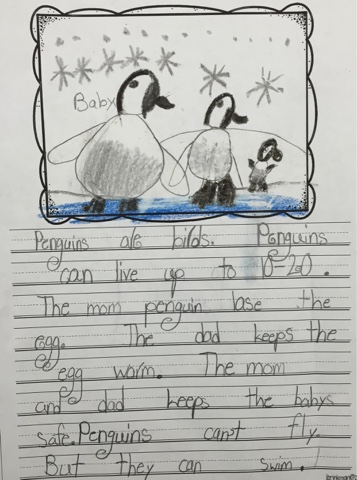 Baby
Penguins are birds. Penguins
can live up to 10-20.
The mom penguin lase the
egg. The dad keeps the
egg worm. The mom
and dad keeps the babys
safe. Penguins can't fly.
But they can swim.